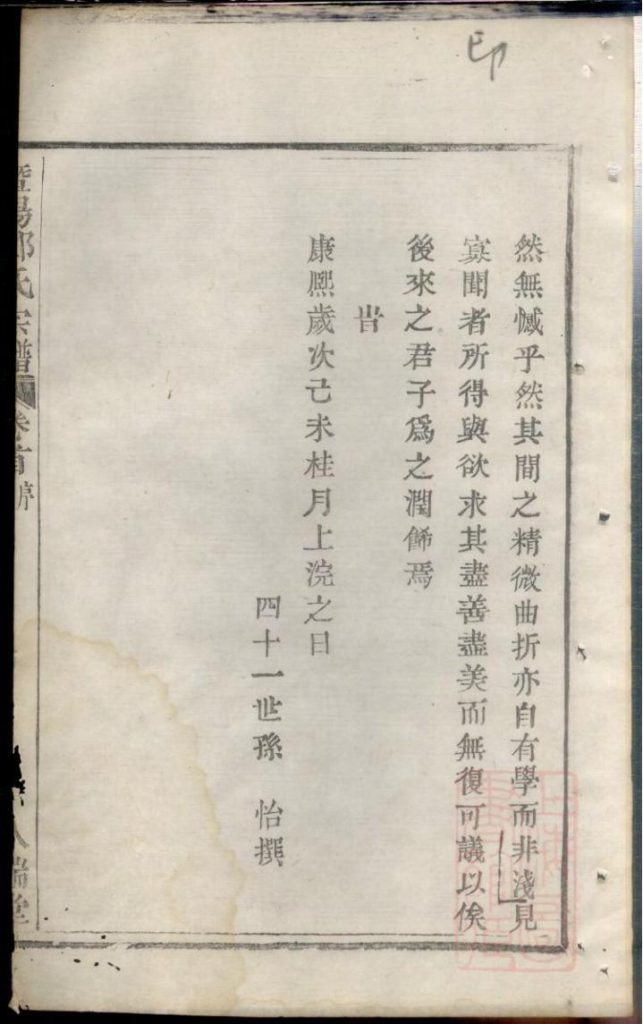 印
然無憾乎然其間之精微曲折亦自有學而非淺見
寡聞者所得與欲求其盡善盡美而無復可議以俟
後來之君子爲之潤餙焉
旹
康熈歲次己未桂月上浣之日
四十一世孫 怡撰
氏宗譜 卷首